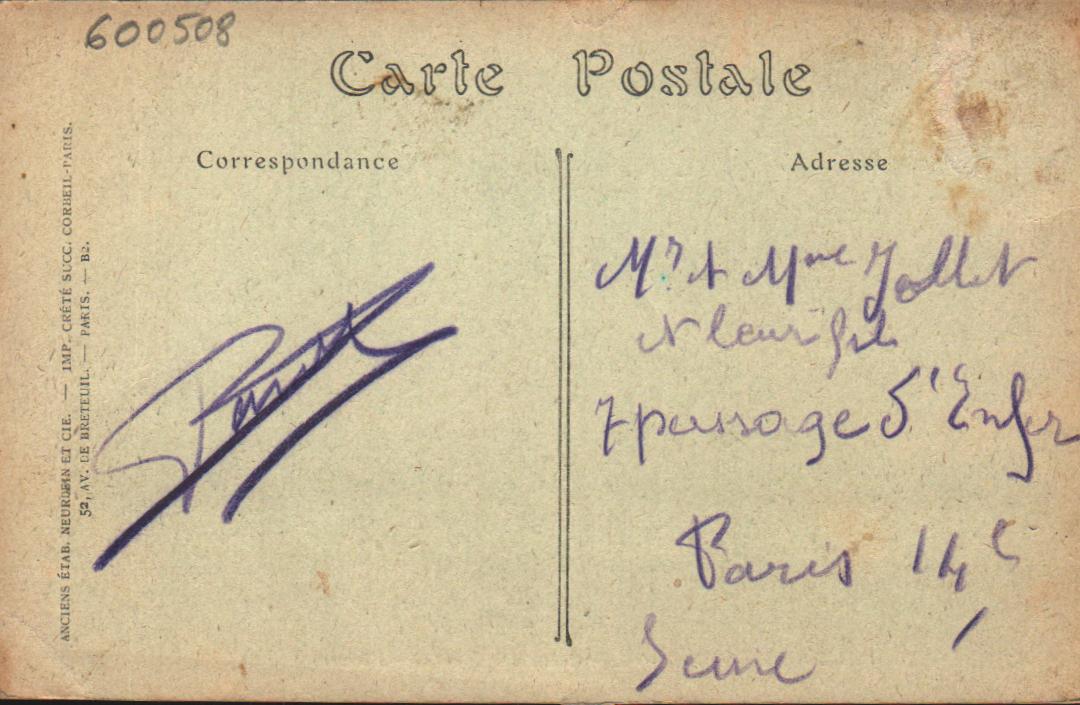 600508
Carte Postale
Correspondance
Adresse
ANCIENS ÉTAB. NEURDEIN ET CIE. — IMP. CRÉTÉ SUCC. CORBEIL-PARIS.
52, AV. DE BRETEUIL. — PARIS. — B2.
Mr & Mme Jollet
et leur fils
7 passage d'Enfer
Paris 14e
Seine